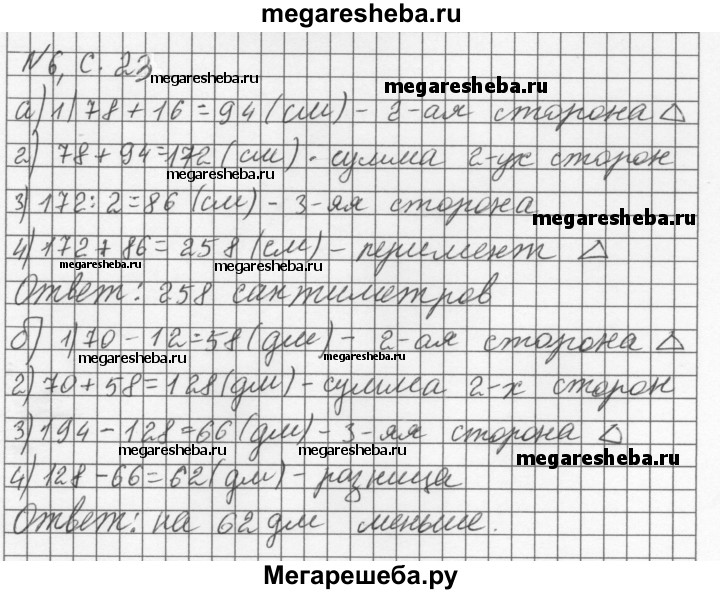 megaresheba.ru
№6, с. 23
megaresheba.ru
megaresheba.ru
а) 1) 78 + 16 = 94 (см) - 2-ая сторона △
2) 78 + 94 = 172 (см) - сумма 2-ух сторон
megaresheba.ru
3) 172 : 2 = 86 (см) - 3-яя сторона
megaresheba.ru
4) 172 + 86 = 258 (см) - перимент △
megaresheba.ru
megaresheba.ru
Ответ: 258 сантиметров
б) 1) 70 - 12 = 58 (дм) - 2-ая сторона △
megaresheba.ru
megaresheba.ru
2) 70 + 58 = 128 (дм) - сумма 2-х сторон
3) 194 - 128 = 66 (дм) - 3-яя сторона △
megaresheba.ru
megaresheba.ru
megaresheba.ru
4) 128 - 66 = 62 (дм) - разница
Ответ: на 62 дм меньше.
Мегарешеба.ру